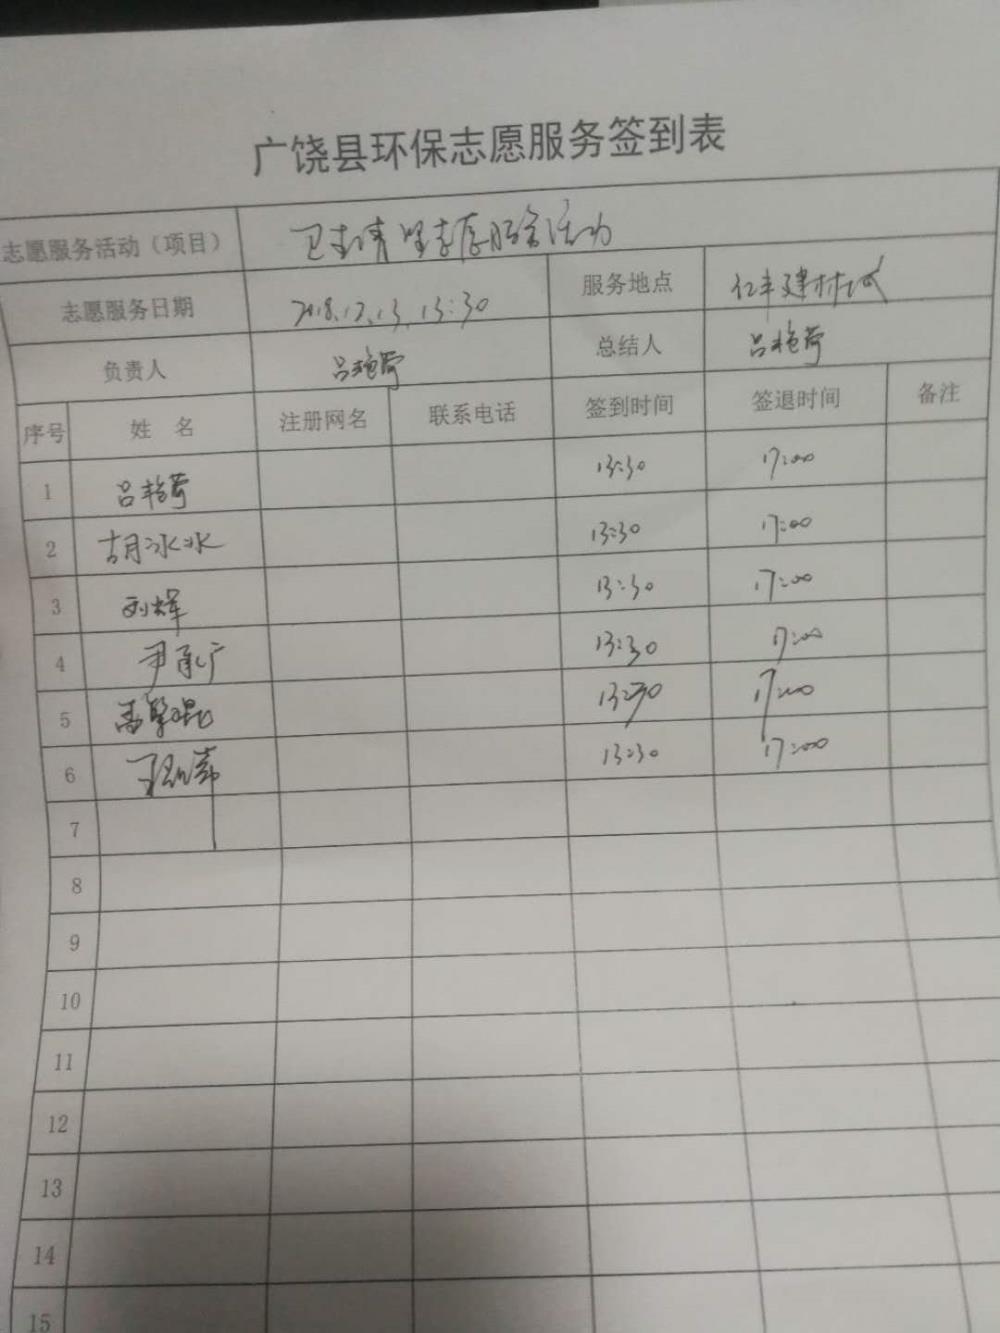 广饶县环保志愿服务签到表
志愿服务活动（项目） 卫生清理志愿服务活动
志愿服务日期 2018.12.13. 13:30 服务地点 仁丰建材城
负责人 吕艳荷 总结人 吕艳荷
序号 姓 名 注册网名 联系电话 签到时间 签退时间 备注
1 吕艳荷 13:30 17:00
2 胡冰冰 13:30 17:00
3 刘辉 13:30 17:00
4 尹承广 13:30 17:00
5 13:30 17:00
6 13:30 17:00
7
8
9
10
11
12
13
14
15